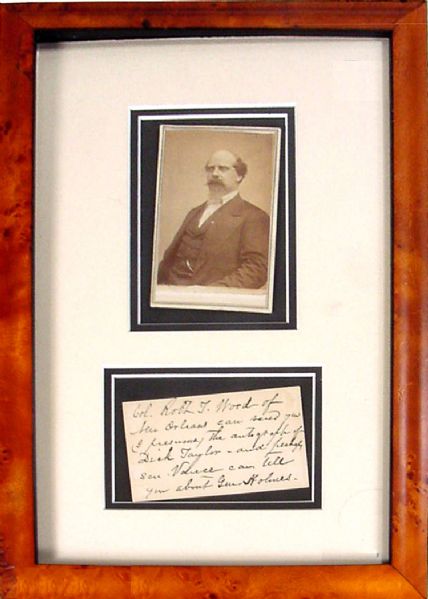 Col. Robt T. Wood of
New Orleans can send you
(I presume) the autograph of
Dick Taylor - and perhaps
Sen Vance can tell
you about Gen. Holmes. -